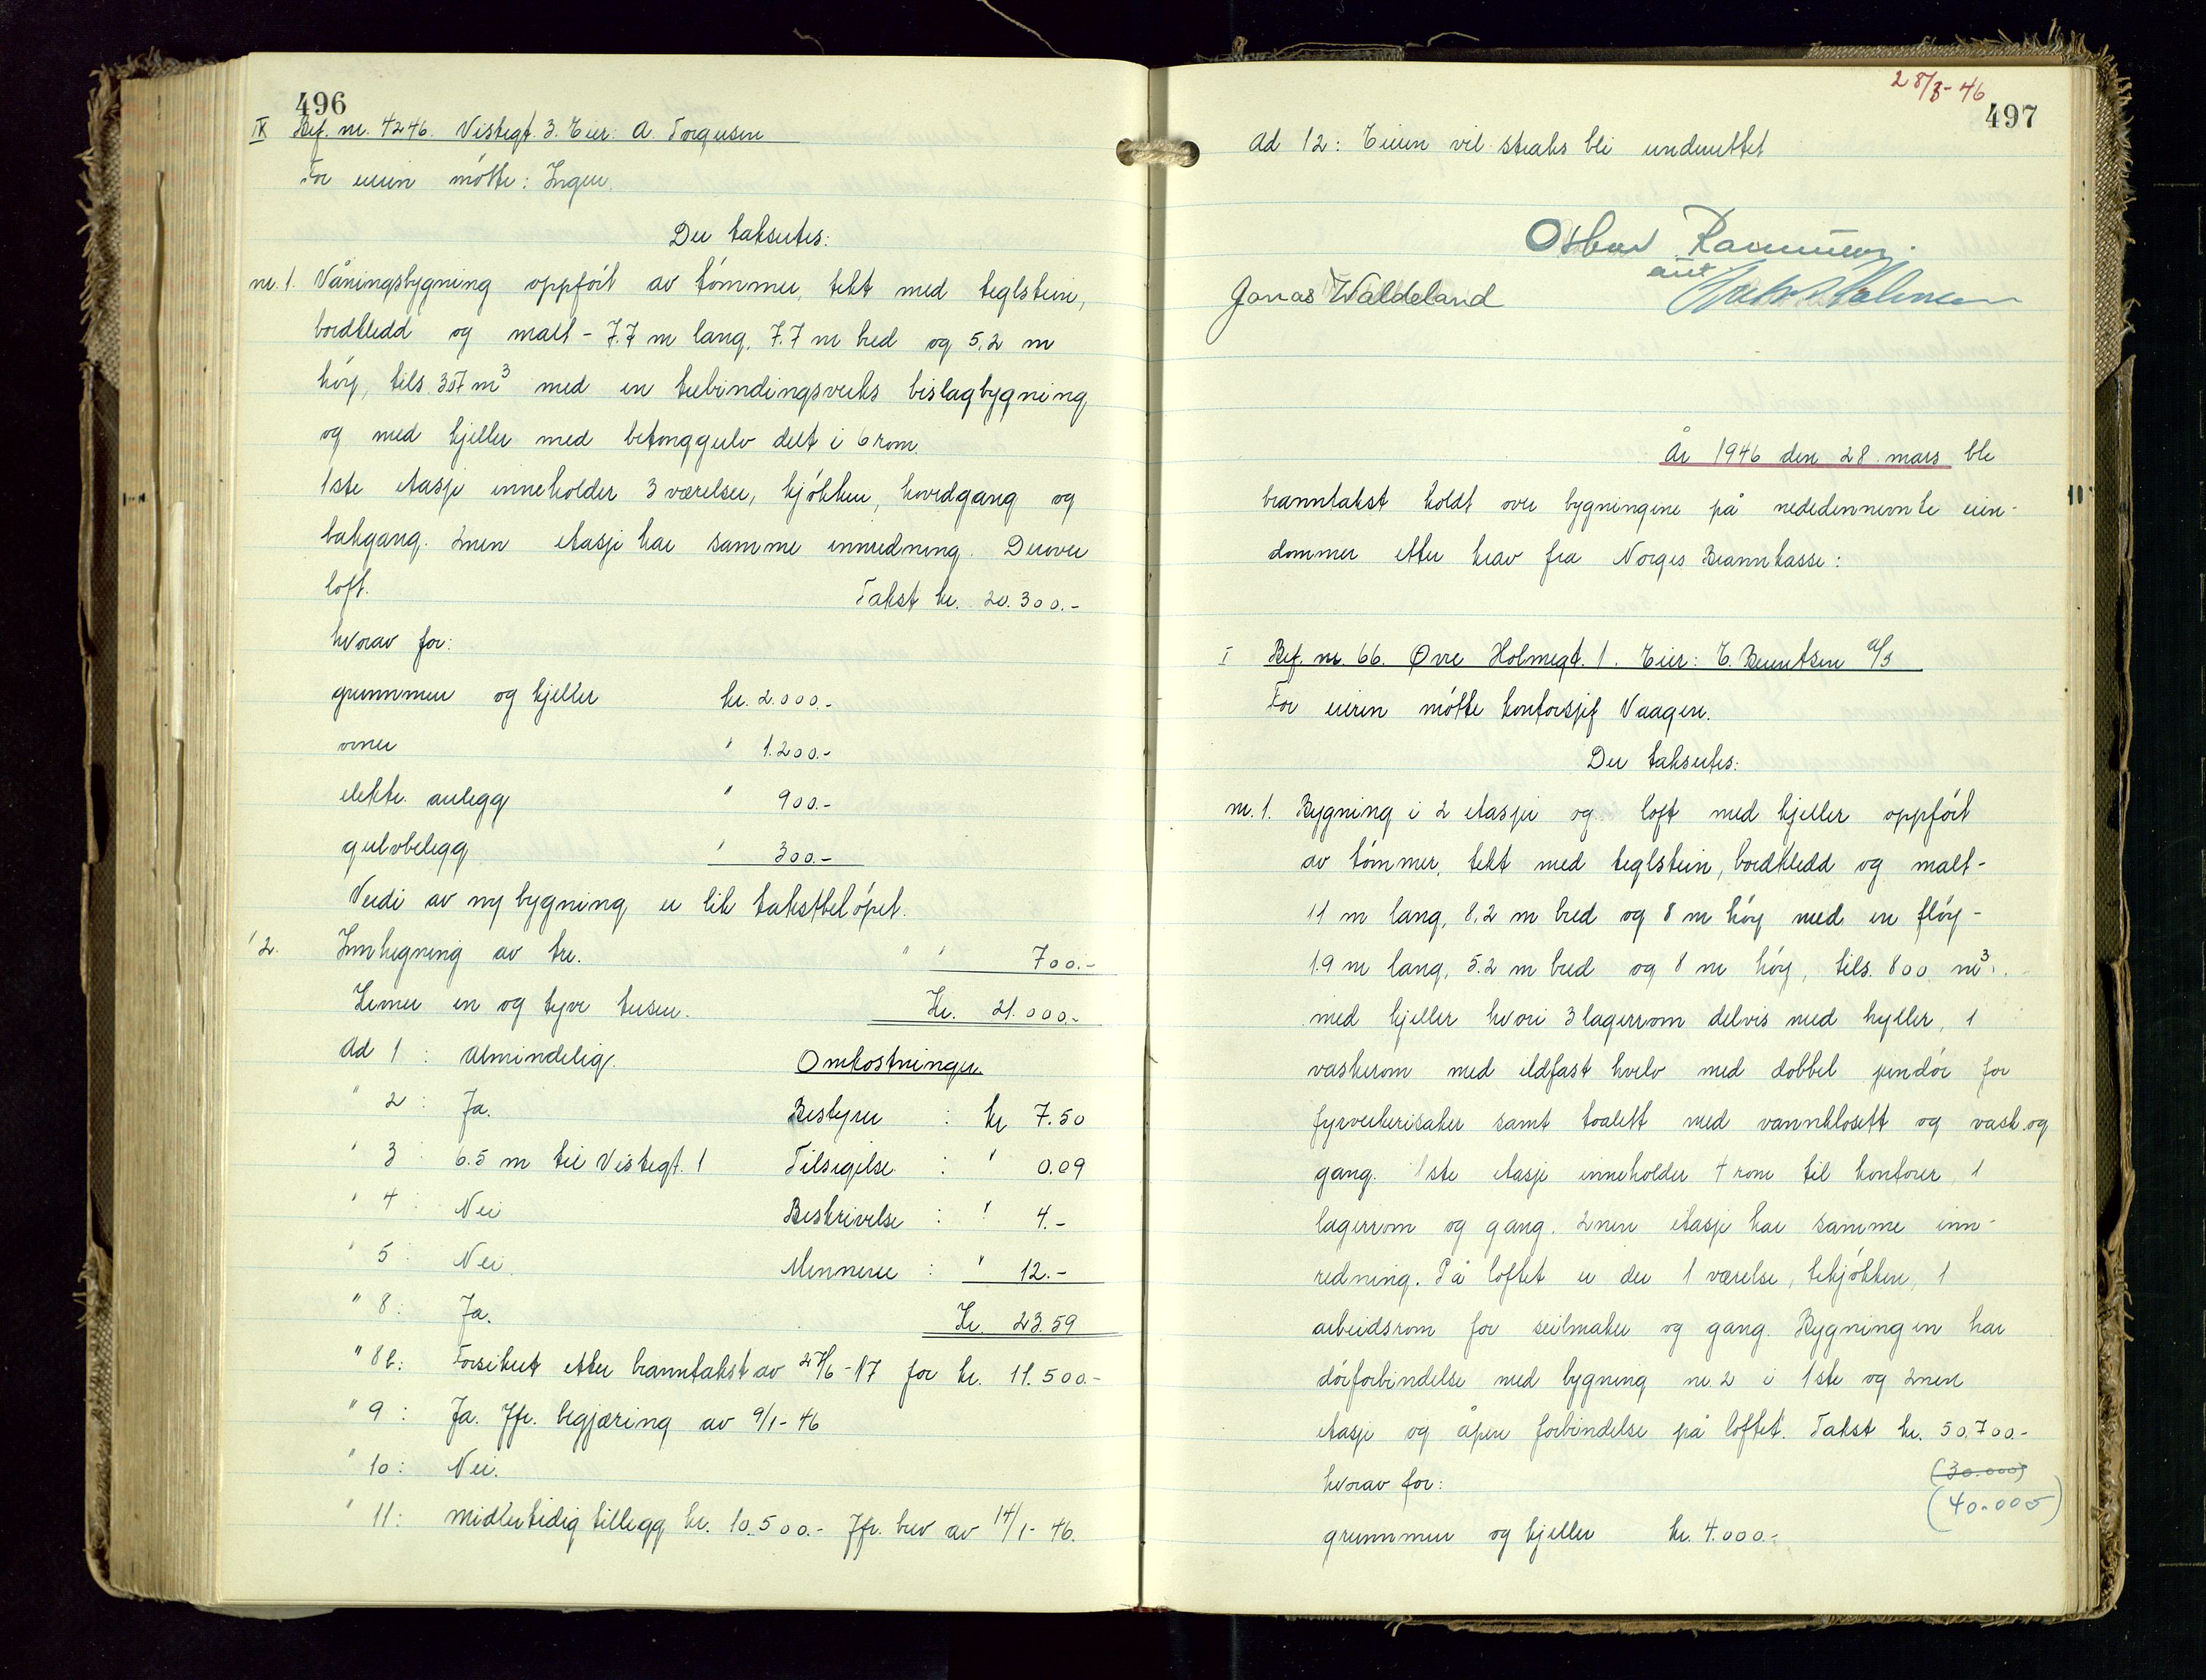 496
IX Bef. nr. 4246. Vistegt. 3. Eier: A. Torgersen
For eieren møtte: Ingen.
Der takseres:
nr. 1. Våningsbygning oppført av tømmer, tekt med teglstein,
bordkledd og malt - 7.7 m lang, 7.7 m bred og 5,2 m
høy, tils. 357 m³ med en trebindingsverks bislagbygning
og med kjeller med betonggulv delt i 6 rom.
1ste etasje inneholder 3 værelser, kjøkken, hovedgang og
bakgang. 2nen etasje har samme innredning. Derover
loft. Takst kr. 20.300.-
hvorav for:
grunnmur og kjeller kr. 2.000.-
ovner " 1.200.-
elektr. anlegg " 900.-
gulvbelegg " 300.-
Verdi av ny bygning er lik takstbeløpet.
" 2. Innhegning av tre. " " 700.-
Kroner en og tyve tusen. Kr. 21.000.-
Ad 1 : Almindelig. Omkostninger
" 2 : Ja. Bestyrer : kr 7.50
" 3 : 6.5 m til Vistegt. 1 Tilsigelse : " 0.09
" 4 : Nei Beskrivelse : " 4.-
" 5 : Nei. Mennene : " 12.-
" 8 : Ja. Kr. 23.59
" 8b: Forsikret etter branntakst av 27/6-17 for kr. 11.500.-
" 9 : Ja. Jfr. begjæring av 9/1-46
" 10 : Nei.
" 11: midlertidig tillegg kr. 10.500.- Jfr. brev av 14/1-46.
28/3-46
497
Ad 12: Eieren vil straks bli underrettet
Jonas Waldeland
År 1946 den 28. mars ble
branntakst holdt over bygningene på nedennevnte eien-
dommer etter krav fra Norges Brannkasse:
I Bef. nr. 66. Øvre Holmegt. 1. Eier: E. Berentsen A/S
For eieren møtte kontorsjef Vaagen.
Der takseres:
nr. 1. Bygning i 2 etasjer og loft med kjeller oppført
av tømmer, tekt med teglstein, bordkledd og malt -
11 m lang, 8,2 m bred og 8 m høy med en fløy -
1.9 m lang, 5.2 m bred og 8 m høy, tils. 800 m³.
med kjeller hvori 3 lagerrom delvis med hyller, 1
vaskerom med ildfast hvelv med dobbel jerndør for
fyrverkerisaker samt toalett med vannklosett og vask og
gang. 1ste etasje inneholder 4 rom til kontorer, 1
lagerrom og gang. 2nen etasje har samme inn-
redning. På loftet er der 1 værelse, tekjøkken, 1
arbeidsrom for seilmaker og gang. Bygningen har
dørforbindelse med bygning nr. 2 i 1ste og 2nen
etasje og åpen forbindelse på loftet. Takst kr. 50.700.-
hvorav for: (30.000)
(40.000)
grunnmur og kjeller kr. 4.000.-